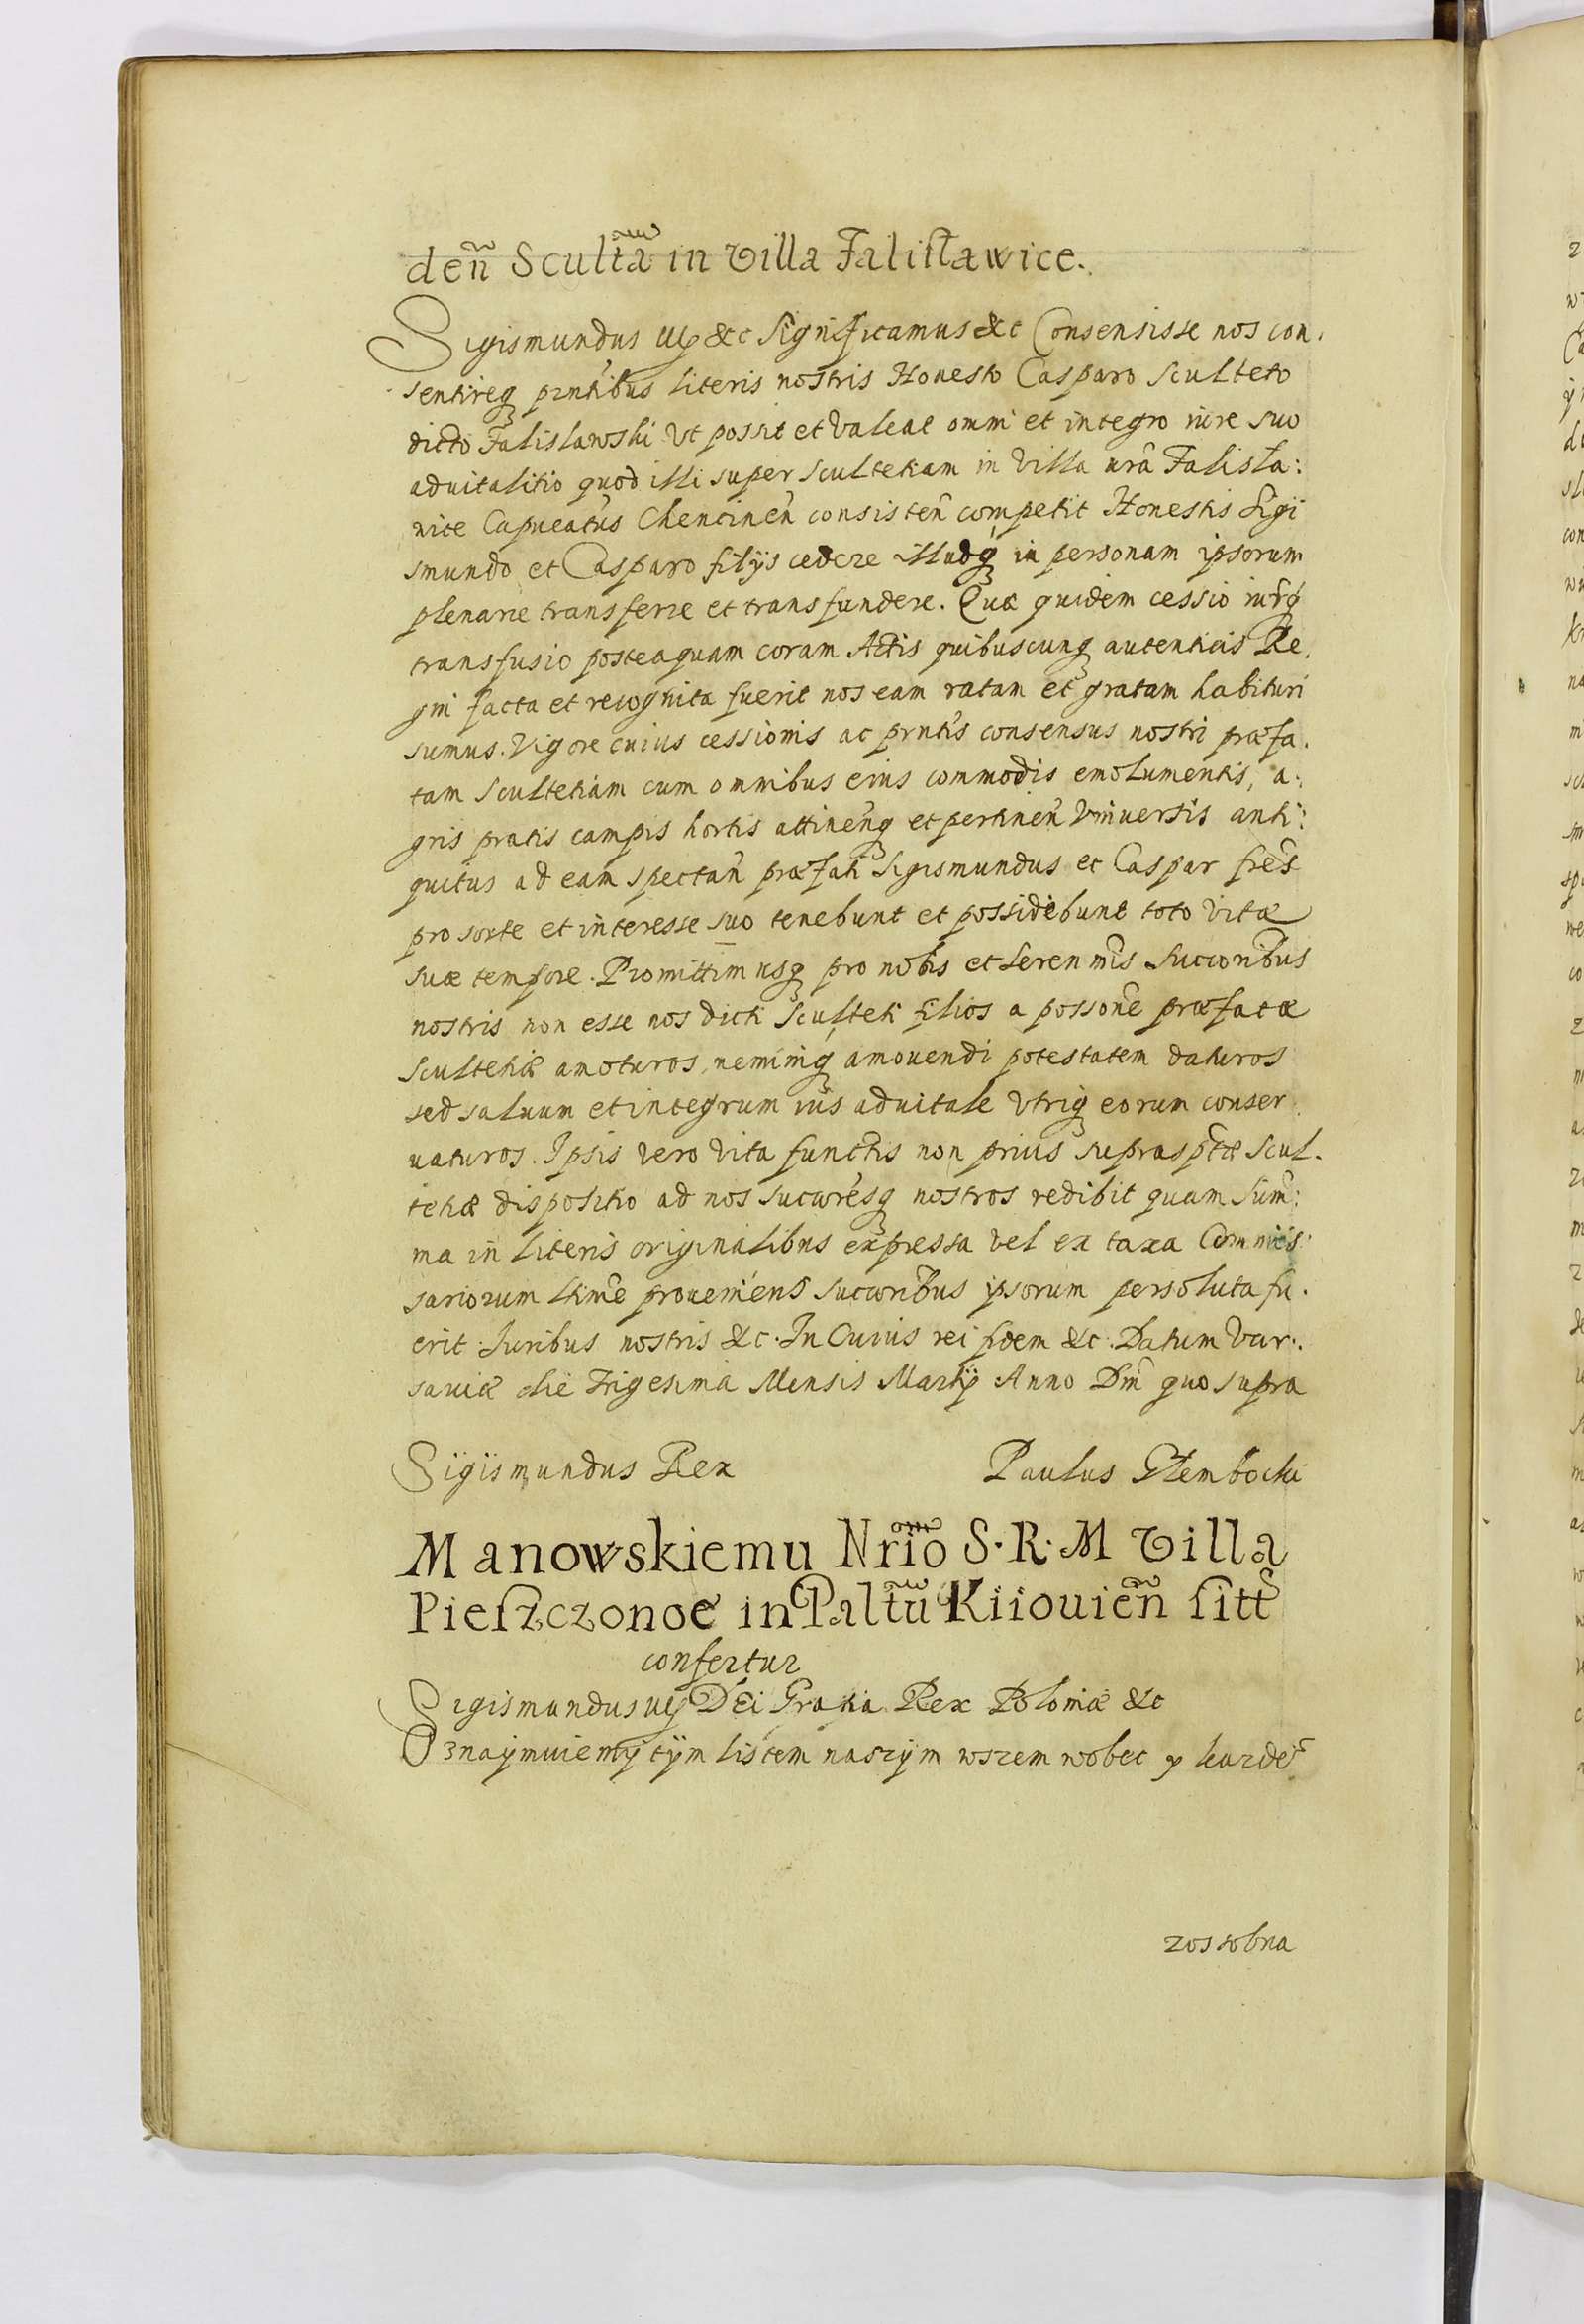 deñ Scultã in Villa Falisławice.
Sigismundus III &c Significamus &c Consensisse nos con.
sentireq̃ pr̃ntibus literis nostris Honesto Casparo Sculteto
dicto Falislawski Vt possit et Valeat omni et integro iure suo
aduitalitio quod illi super Scultetiam in Villa nrã Falisla:
wice Capneatus Chencineñ consisteñ competit Honestis Sigi
smundo et Casparo filijs cedere illudq̃ in personam ipsorum
plenarie transferre et transfundere. Quæ quidem cessio iurq̃
transfusio posteaquam coram Actis quibuscunq̃ autenticis Re.
gni facta et recognita fuerit nos eam ratam et gratam habituri
sumus. Vigore cuius cessionis ac prntis consensus nostri præfa.
tam Scultetiam cum omnibus eius commodis emolumentis, a:
gris pratis campis hortis attineñq̃ et pertineñ Vniuersis anti:
quitus ad eam spectañ præfati Sigismundus et Caspar frẽs
pro sorte et interesse suo tenebunt et possidebunt toto Vitæ
suæ tempore. Promittimusq̃ pro nobis et Serenmis Succoribus
nostris non esse nos dicti Sculteti filios a possone præfatæ
Scultetiæ amoturos, neminiq̃ amouendi potestatem daturos
sed saluum et integrum ius aduitale Vtriq̃ eorum conser.
uaturos. Ipsis Vero Vita functis non prius suprasptæ Scul.
tetiæ dispositio ad nos succoresq̃ nostros redibit quam Sum:
ma in literis originalibus expressa vel ex taxa Commis:
sariorum ltime proueniens succoribus ipsorum persoluta fu.
erit. Iuribus nostris &c. In Cuius rei fidem &c. Datum Var:.
sauiæ die Trigesima Mensis Martij Anno Dñi quo supra
Sigismundus Rex Paulus Głembocki
Manowskiemu Nrĩo S. R. M Villa
Pieszczonoe in Paltũ Kiiouieñ sitt
confertur
Sigismundus III DEi Gratia Rex Poloniæ &c
Oznaymuiemy tym listem naszym wszem wobec y kazde
zossobna